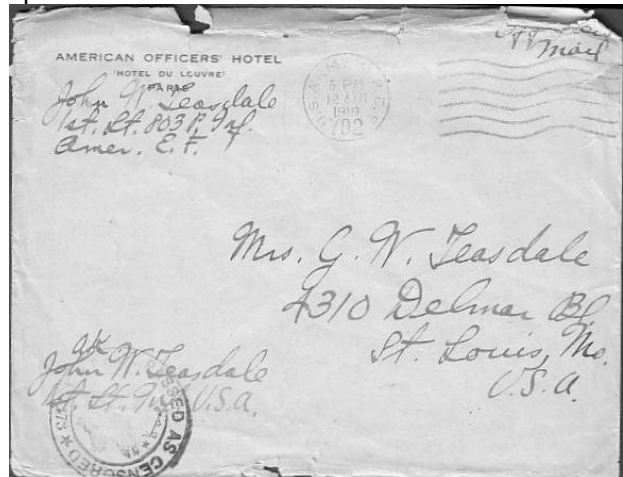 AMERICAN OFFICERS' HOTEL
HOTEL DU LOUVRE
PARIS
John W Teasdale
1st. Lt. 803 P. Inf.
Amer. E. F.
5 PM
1919
702
Mail
Mrs. G. W. Teasdale
4310 Delmar Bl.
St. Louis, Mo.
U.S.A.
OK
John W. Teasdale
1st. Lt. Inf U.S.A.
PASSED AS CENSORED